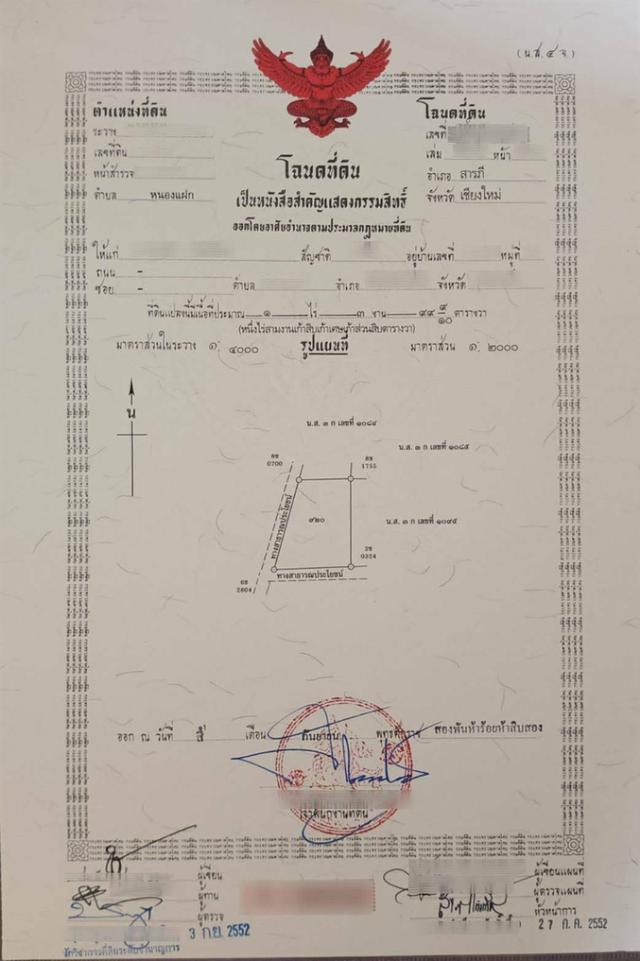 (น.ส. ๔ จ.)
ตำแหน่งที่ดิน
ระวาง
เลขที่ดิน
หน้าสำรวจ
ตำบล หนองแฝก
โฉนดที่ดิน
เลขที่
เล่ม หน้า
อำเภอ สารภี
จังหวัด เชียงใหม่
โฉนดที่ดิน
เป็นหนังสือสำคัญแสดงกรรมสิทธิ์
ออกโดยอาศัยอำนาจตามประมวลกฎหมายที่ดิน
ให้แก่ สัญชาติ อยู่บ้านเลขที่ หมู่ที่
ถนน -
ซอย - ตำบล อำเภอ จังหวัด
ที่ดินแปลงนี้มีเนื้อที่ประมาณ ๑ ไร่ ๓ งาน ๙๙ ๙/๑๐ ตารางวา
(หนึ่งไร่สามงานเก้าสิบเก้าเศษเก้าส่วนสิบตารางวา)
มาตราส่วนในระวาง ๑: ๔๐๐๐ รูปแผนที่ มาตราส่วน ๑: ๒๐๐๐
น
น.ส. ๓ ก เลขที่ ๑๐๘๔
น.ส. ๓ ก เลขที่ ๑๐๘๕
8ช
0700
8ช
1755
ทางสาธารณประโยชน์
๙๒๐
น.ส. ๓ ก เลขที่ ๑๐๙๕
2ช
0324
ทางสาธารณประโยชน์
6ช
2604
ออก ณ วันที่ สี่ เดือน กันยายน พุทธศักราช สองพันห้าร้อยห้าสิบสอง
เจ้าพนักงานที่ดิน
ผู้เขียน
ผู้ทาน
ผู้ตรวจ
3 กย 2552
นักวิชาการที่ดินระดับชำนาญการ
ผู้เขียนแผนที่
ผู้ตรวจแผนที่
หัวหน้าการ
27 ก.ค. 2552